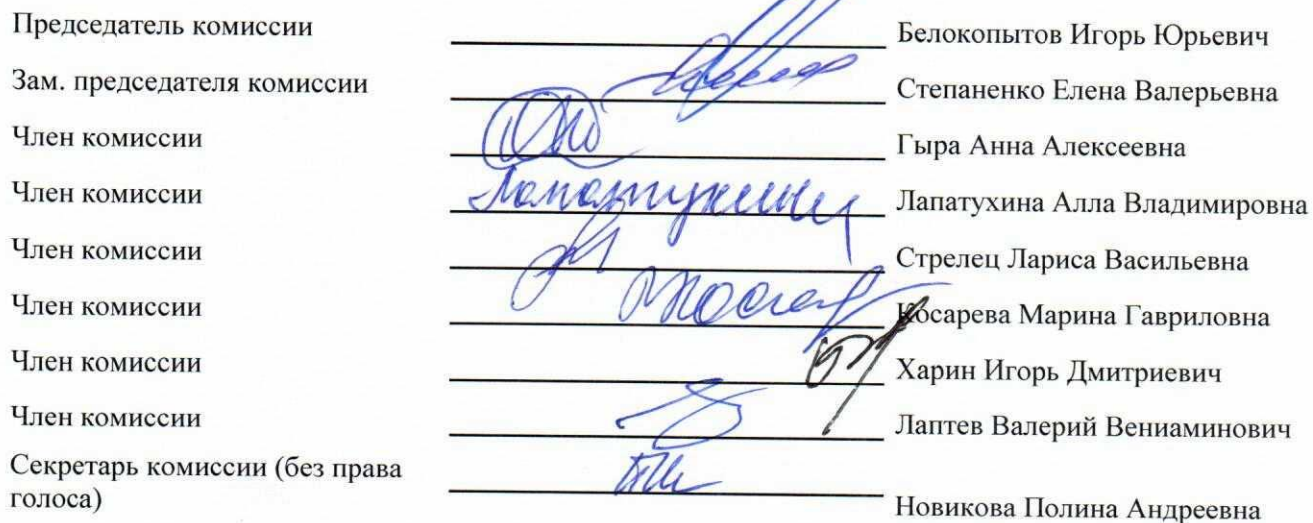 Председатель комиссии Белокопытов Игорь Юрьевич
Зам. председателя комиссии Степаненко Елена Валерьевна
Член комиссии Гыра Анна Алексеевна
Член комиссии Лапатухина Алла Владимировна
Член комиссии Стрелец Лариса Васильевна
Член комиссии Косарева Марина Гавриловна
Член комиссии Харин Игорь Дмитриевич
Член комиссии Лаптев Валерий Вениаминович
Секретарь комиссии (без права
голоса) Новикова Полина Андреевна